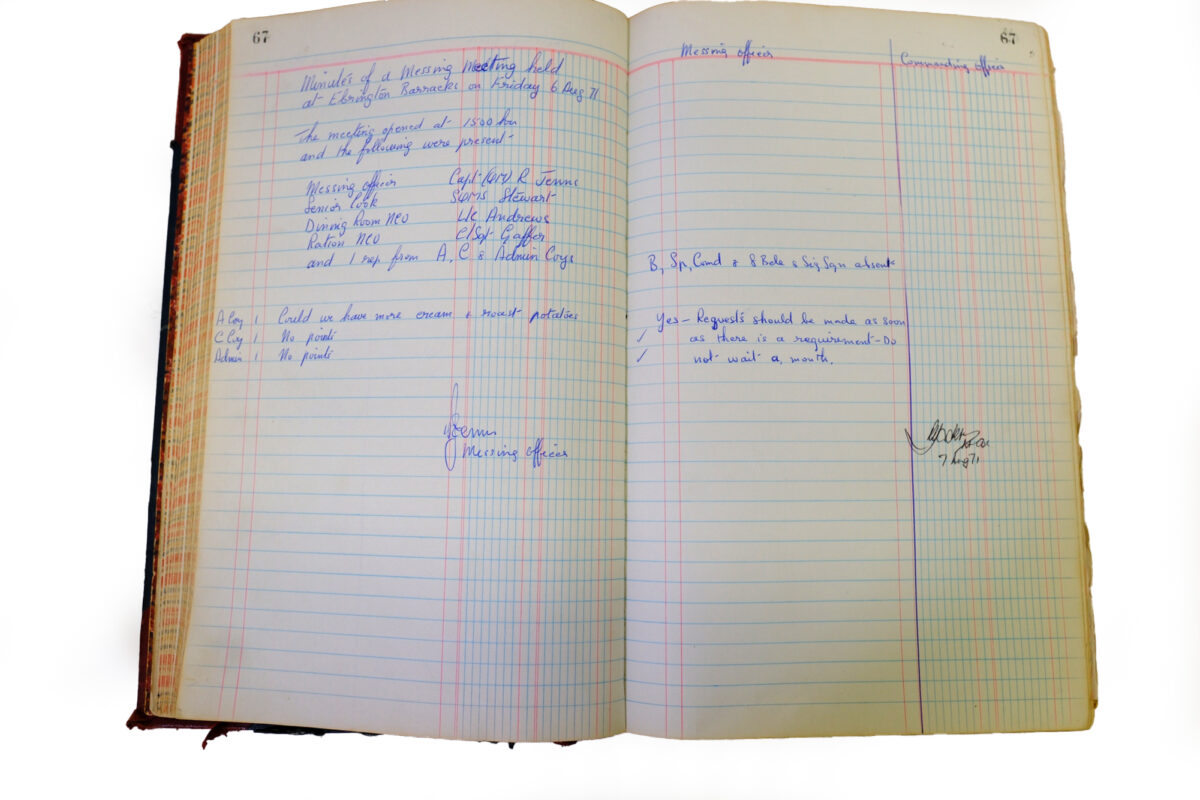 67
Minutes of a Messing Meeting held
at Ebrington Barracks on Friday 6 Aug 71
The meeting opened at 1500 hrs
and the following were present-
Messing officer Capt (QM) R Jenns
Senior Cook SQMS Stewart
Dining Room NCO L/c Andrews
Ration NCO C/Sgt Gaffer
and 1 rep from A, C & Admin Coys
A Coy 1 Could we have more cream & roast potatoes
C Coy 1 No points
Admin 1 No points
Messing officer
67
Messing officer
Commanding officer
B, Sp, Comd & 8 Bde & Sig Sqn absent
Yes - Requests should be made as soon
as there is a requirement - Do
not wait a month.
7 Aug 71